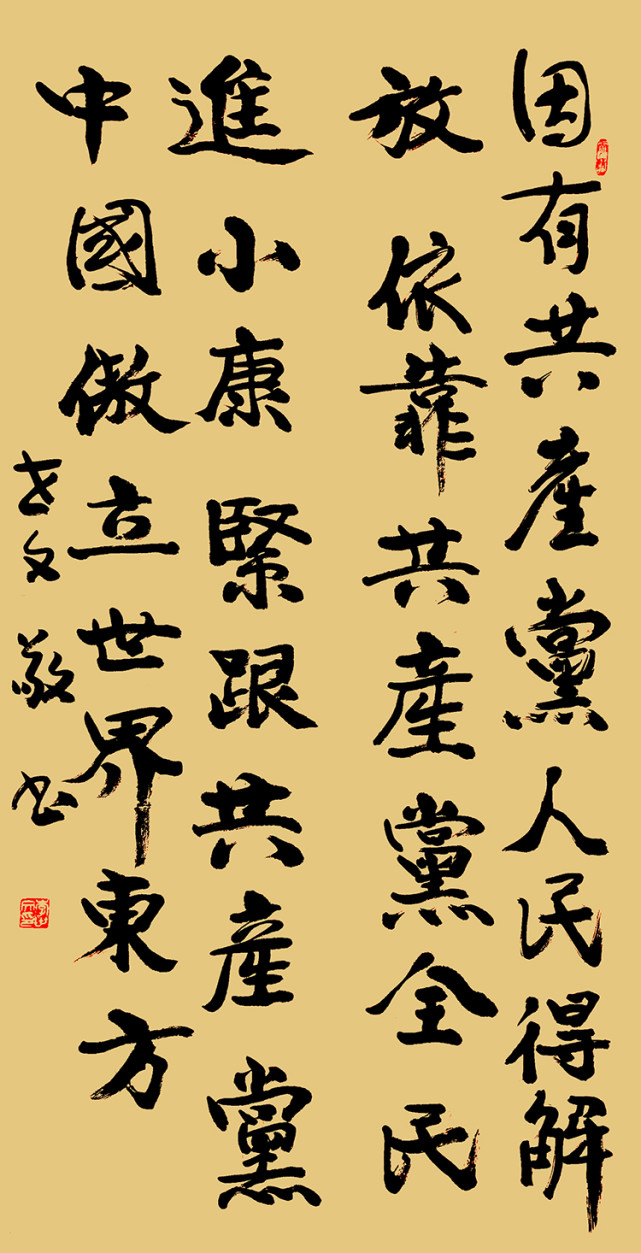 因有共產黨人民得解
放依靠共產黨全民
進小康緊跟共產黨
中國傲立世界東方
世文敬书